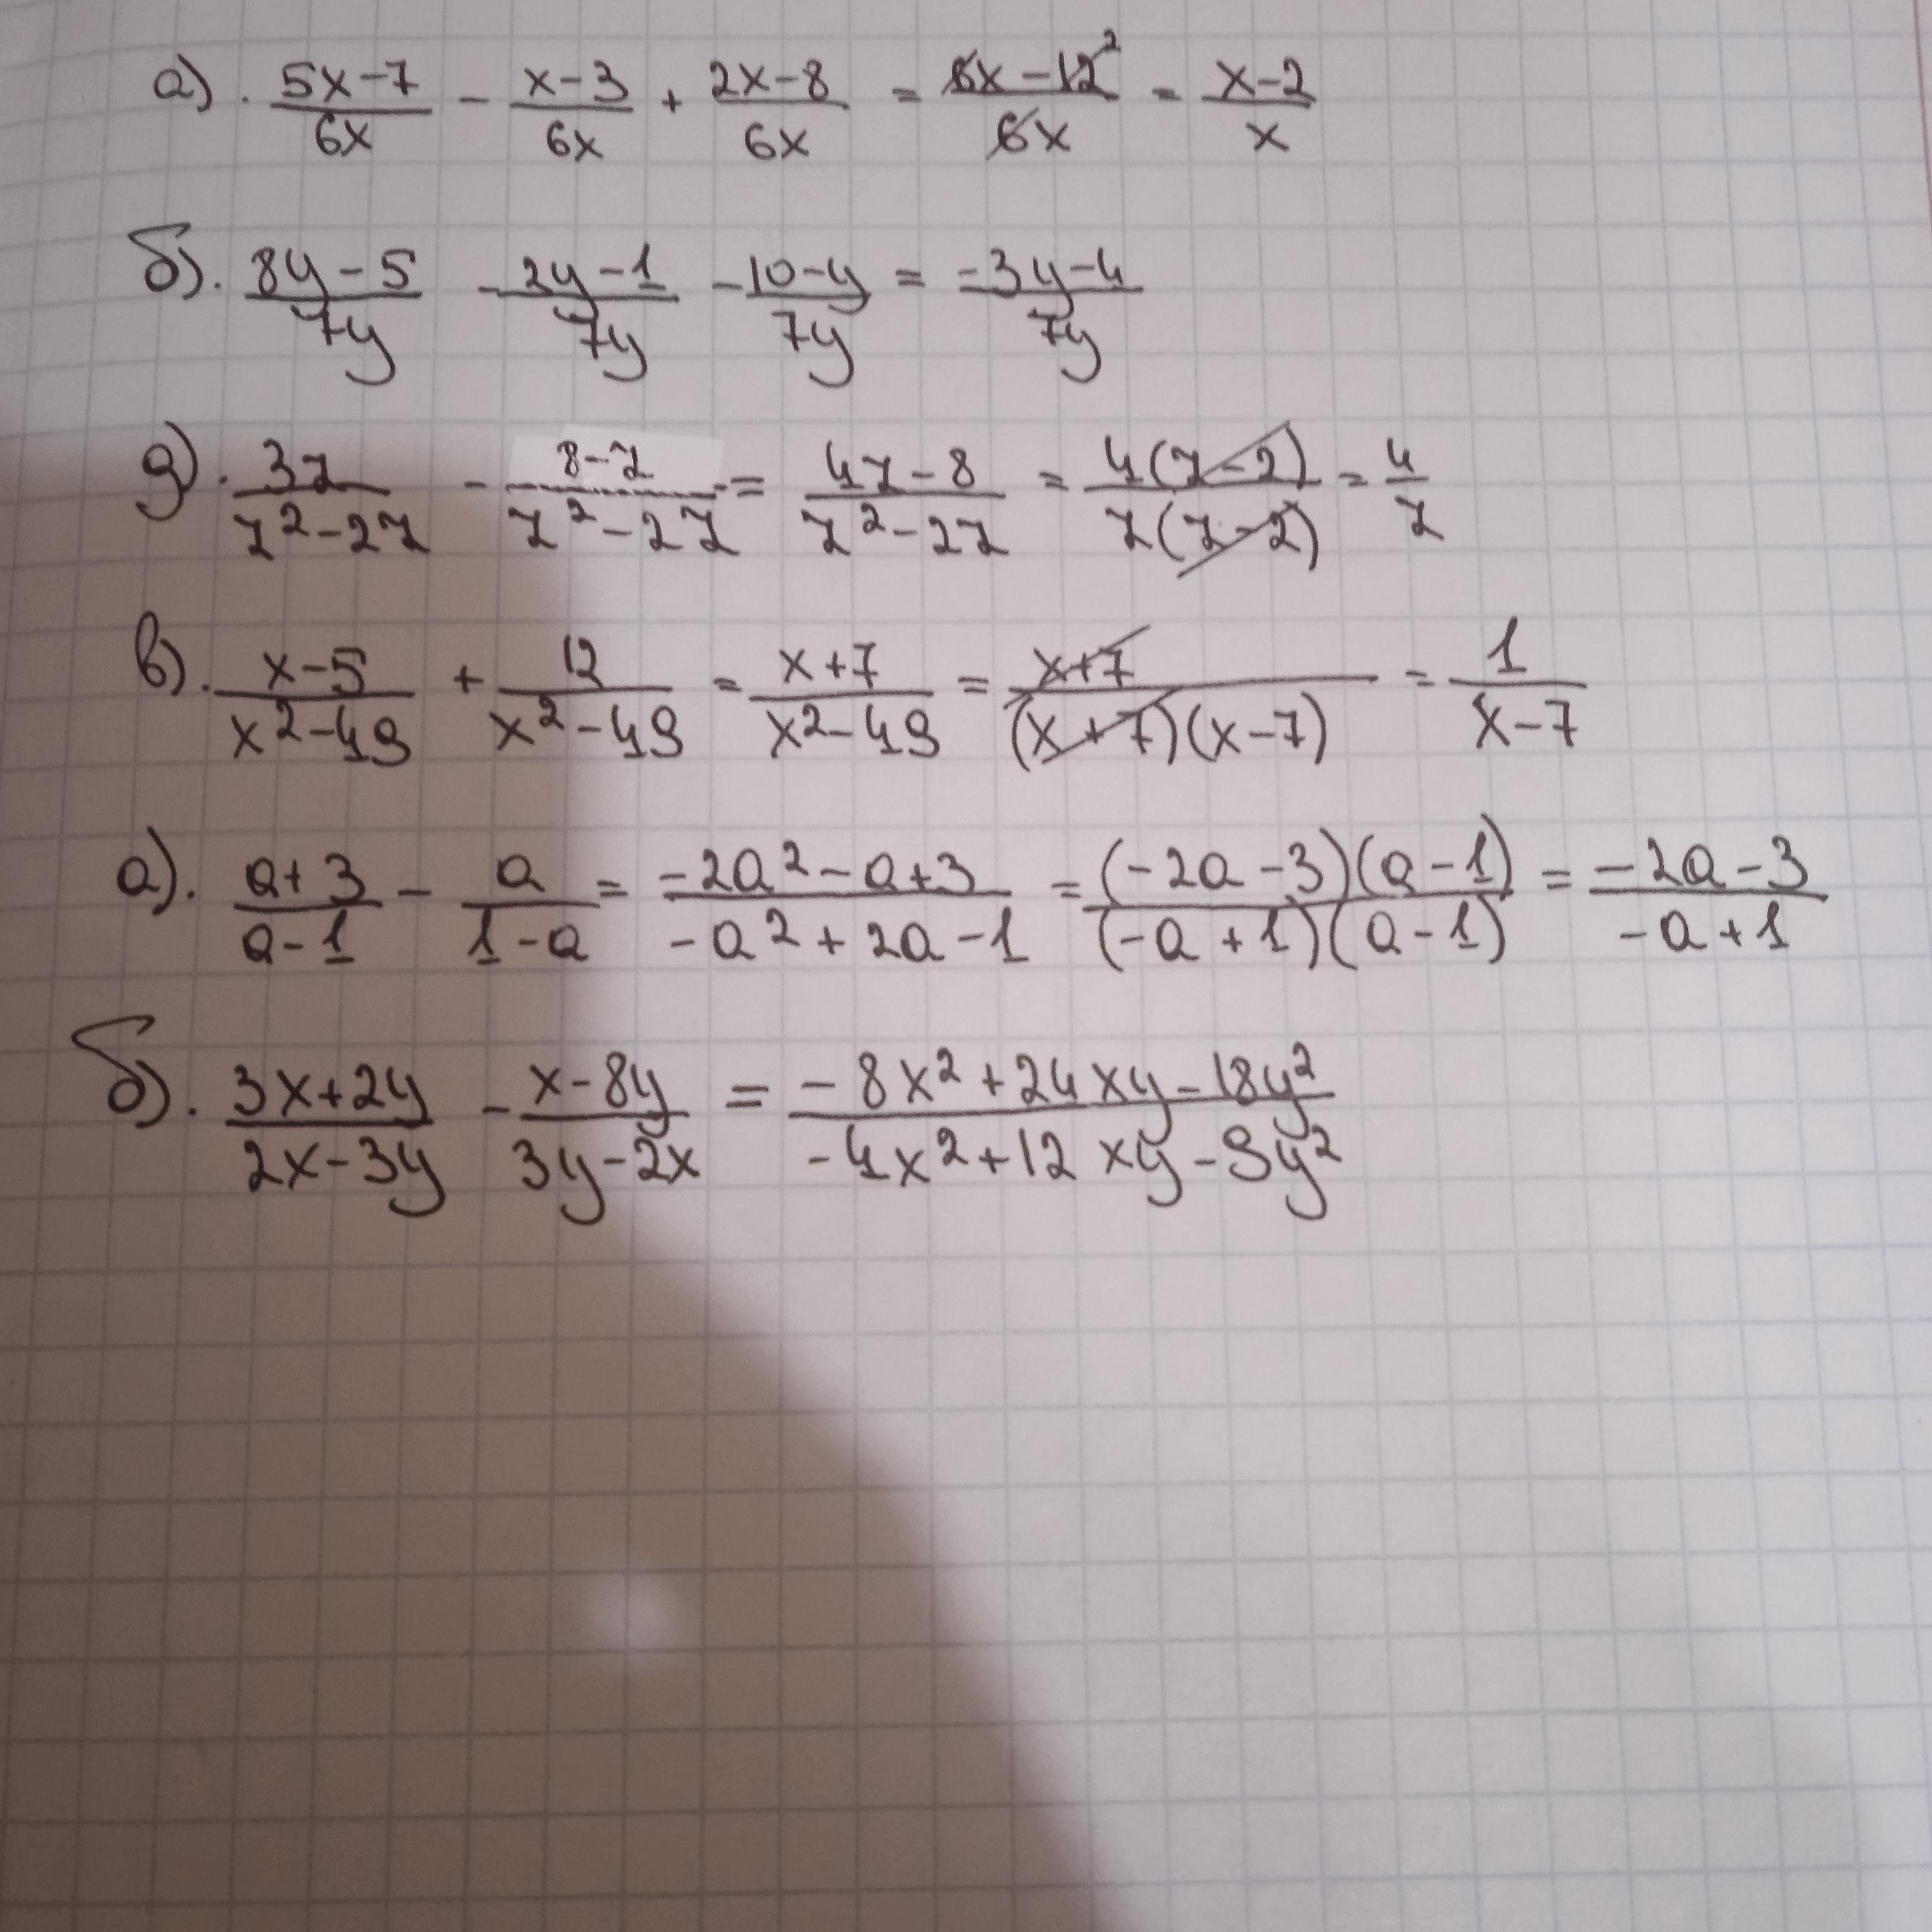 а). (5x-7)/(6x) - (x-3)/(6x) + (2x-8)/(6x) = (6x-12²)/(6x) = (x-2)/x
б). (8y-5)/(7y) - (2y-1)/(7y) - (10-y)/(7y) = (-3y-4)/(7y)
д). (3z)/(z²-2z) - (8-z)/(z²-2z) = (4z-8)/(z²-2z) = (4(z-2))/(z(z-2)) = 4/z
в). (x-5)/(x²-49) + 12/(x²-49) = (x+7)/(x²-49) = (x+7)/((x+7)(x-7)) = 1/(x-7)
а). (a+3)/(a-1) - a/(1-a) = (-2a²-a+3)/(-a²+2a-1) = ((-2a-3)(a-1))/((-a+1)(a-1)) = (-2a-3)/(-a+1)
б). (3x+2y)/(2x-3y) - (x-8y)/(3y-2x) = (-8x²+24xy-18y²)/(-4x²+12xy-9y²)